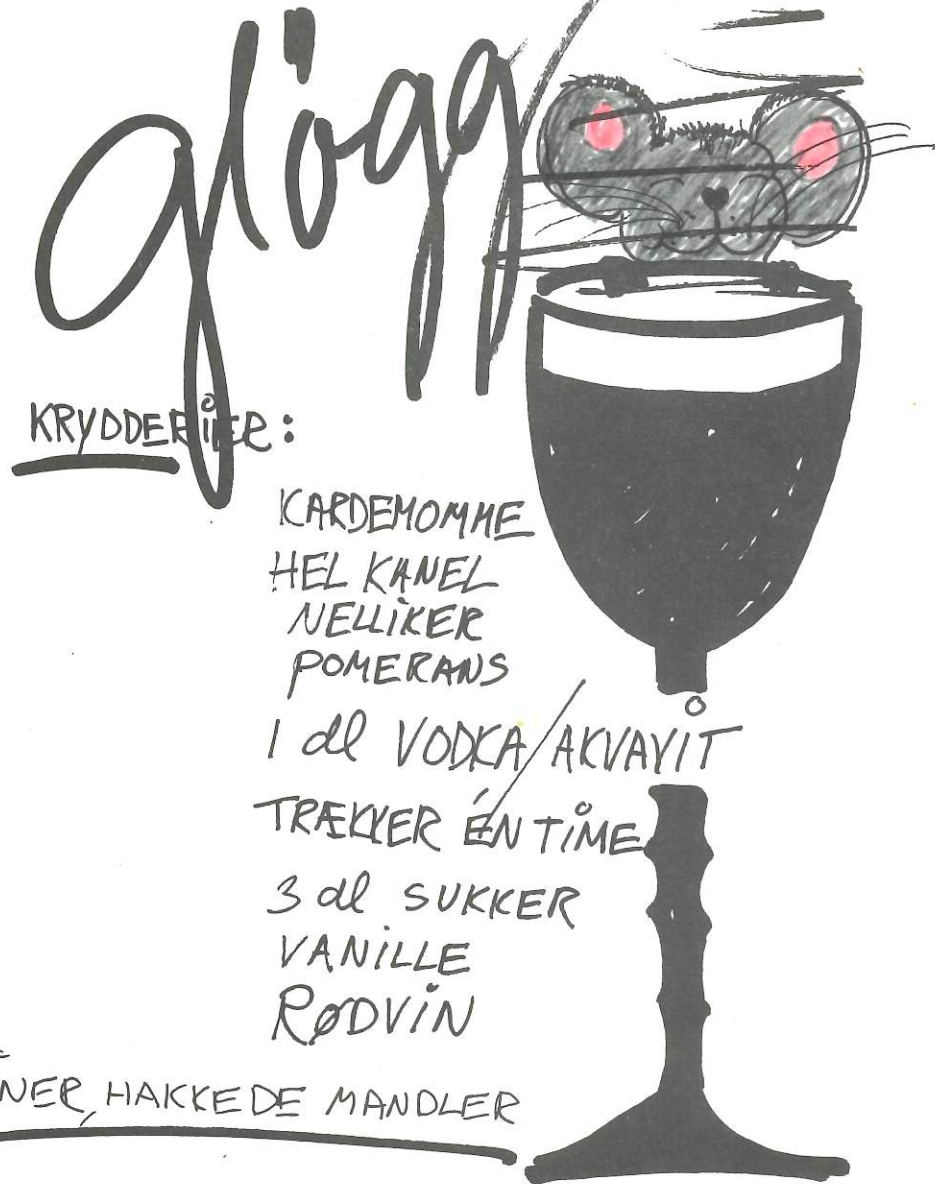 glögg
KRYDDERIER:
KARDEMOMME
HEL KANEL
NELLIKER
POMERANS
1 dl VODKA/AKVAVIT
TRÆKKER ÉN TIME
3 dl SUKKER
VANILLE
RØDVIN
NER, HAKKEDE MANDLER